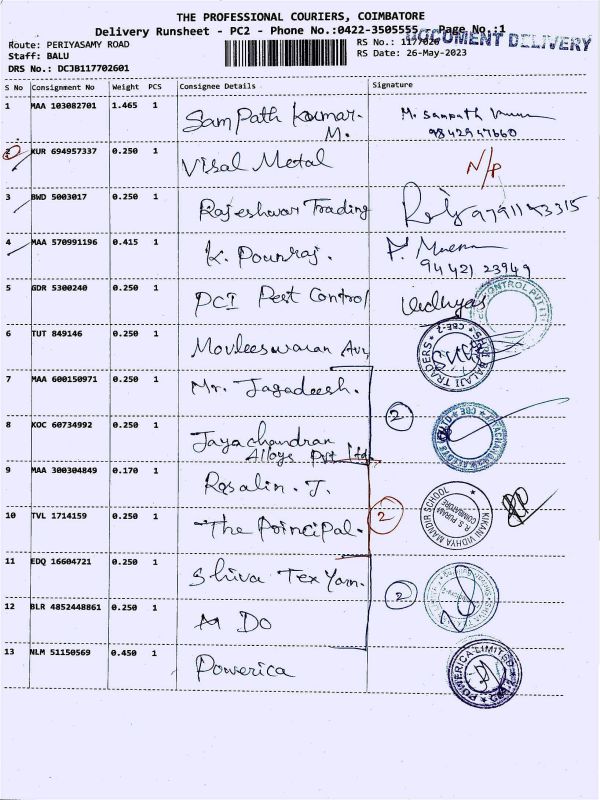 THE PROFESSIONAL COURIERS, COIMBATORE
Delivery Runsheet - PC2 - Phone No.:0422-3505555 Page No.:1
DOCUMENT DELIVERY
Route: PERIYASAMY ROAD
RS No.: 1177026
Staff: BALU
RS Date: 26-May-2023
DRS No.: DCJB117702601
S No Consignment No Weight PCS Consignee Details Signature
1 MAA 103082701 1.465 1 Sampath Kumar. M. M. Sampath Kumar
9842957660
2 KUR 694957337 0.250 1 Visal Metal N/P
3 BWD 5003017 0.250 1 Rajeshwar Trading 9791153315
4 MAA 570991196 0.415 1 K. Pounraj. P. Meena
94421 23949
5 GDR 5300240 0.250 1 PCI Pest Control Vidhyas
CONTROL PVT LTD
6 TUT 849146 0.250 1 Movleeswaran Avn,
SHRI BALAJI TRADERS CBE-2
7 MAA 600150971 0.250 1 Mr. Jagadeesh.
2
8 KOC 60734992 0.250 1 Jayachandran
Alloys Pvt Ltd.
9 MAA 300304849 0.170 1 Rosalin. J.
2
KIKANI VIDHYA MANDIR SCHOOL
R.S. PURAM
COIMBATORE
10 TVL 1714159 0.250 1 The Principal.
11 EDQ 16604721 0.250 1 Shiva Tex Yarn.
2
12 BLR 4852448861 0.250 1 Do
13 NLM 51150569 0.450 1 Powerica
POWERICA LIMITED